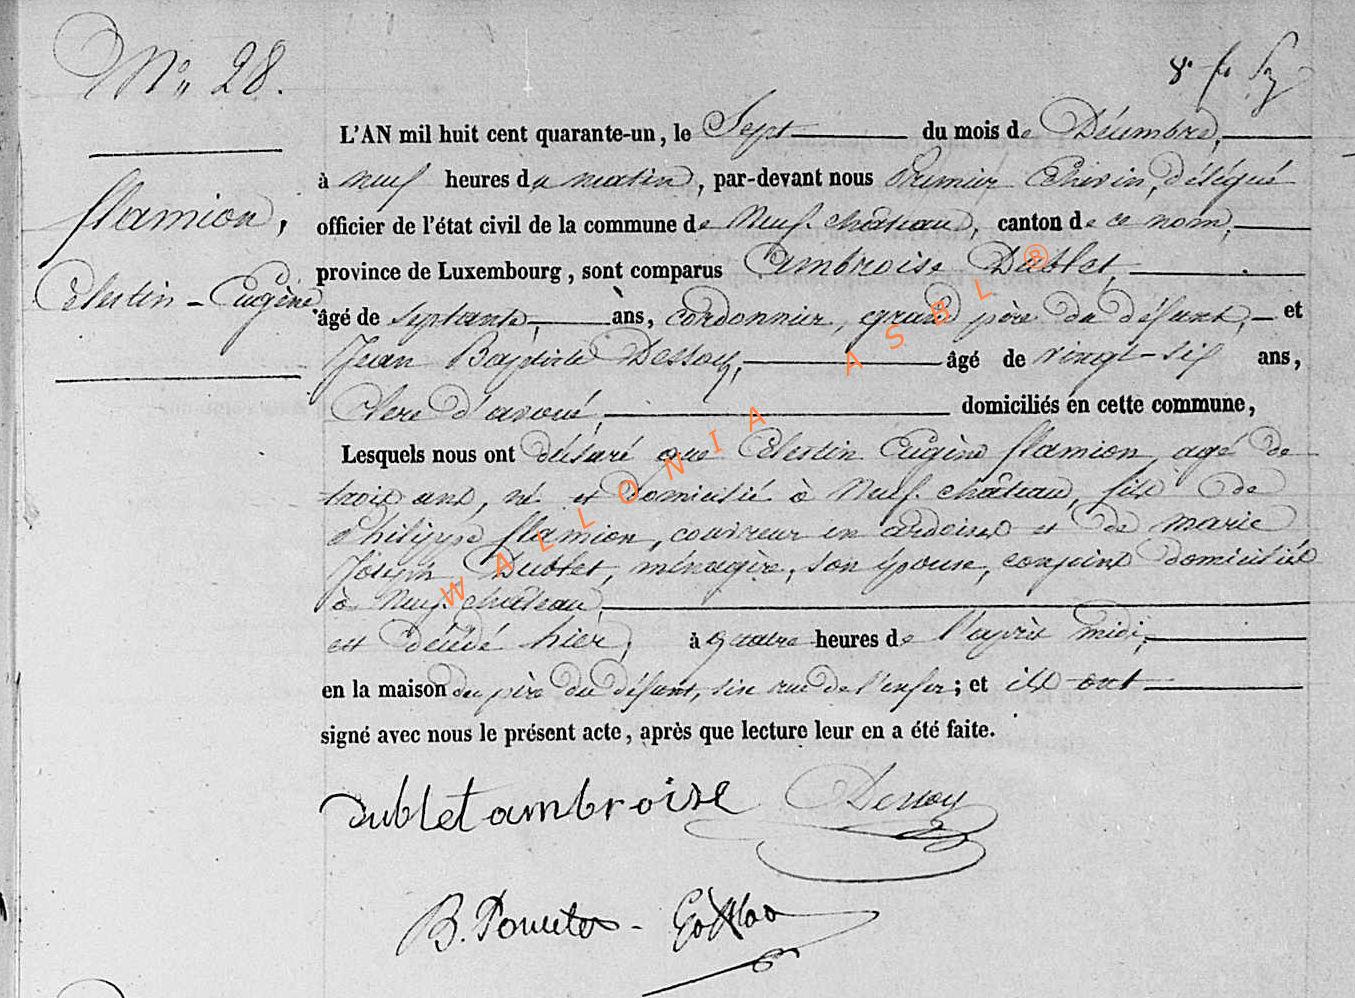 N° 28.
L'AN mil huit cent quarante-un, le Sept du mois de Décembre,
à neuf heures du matin, par-devant nous Premier Echevin, délégué
Flamion,
officier de l'état civil de la commune de Neuf-château, canton de ce nom,
province de Luxembourg, sont comparus Ambroise Dublet,
Célestin-Eugène.
âgé de septante, ans, cordonnier, grand père du défunt, et
Jean Baptiste Dessoy, âgé de vingt-six ans,
Clerc d'avoué, domiciliés en cette commune,
Lesquels nous ont déclaré que Célestin Eugène Flamion, agé de
trois ans, né et domicilié à Neuf-château, fils de
Philippe Flamion, couvreur en ardoises et de Marie
Joseph Dublet, ménagère, son épouse, conjoints domiciliés
à Neuf-château,
est décédé hier, à quatre heures de l'après midi,
en la maison du père du défunt, sise rue de l'enfer; et ils ont
signé avec nous le présent acte, après que lecture leur en a été faite.
dublet ambroise Dessoy
B.
WALLONIA ASBL ®